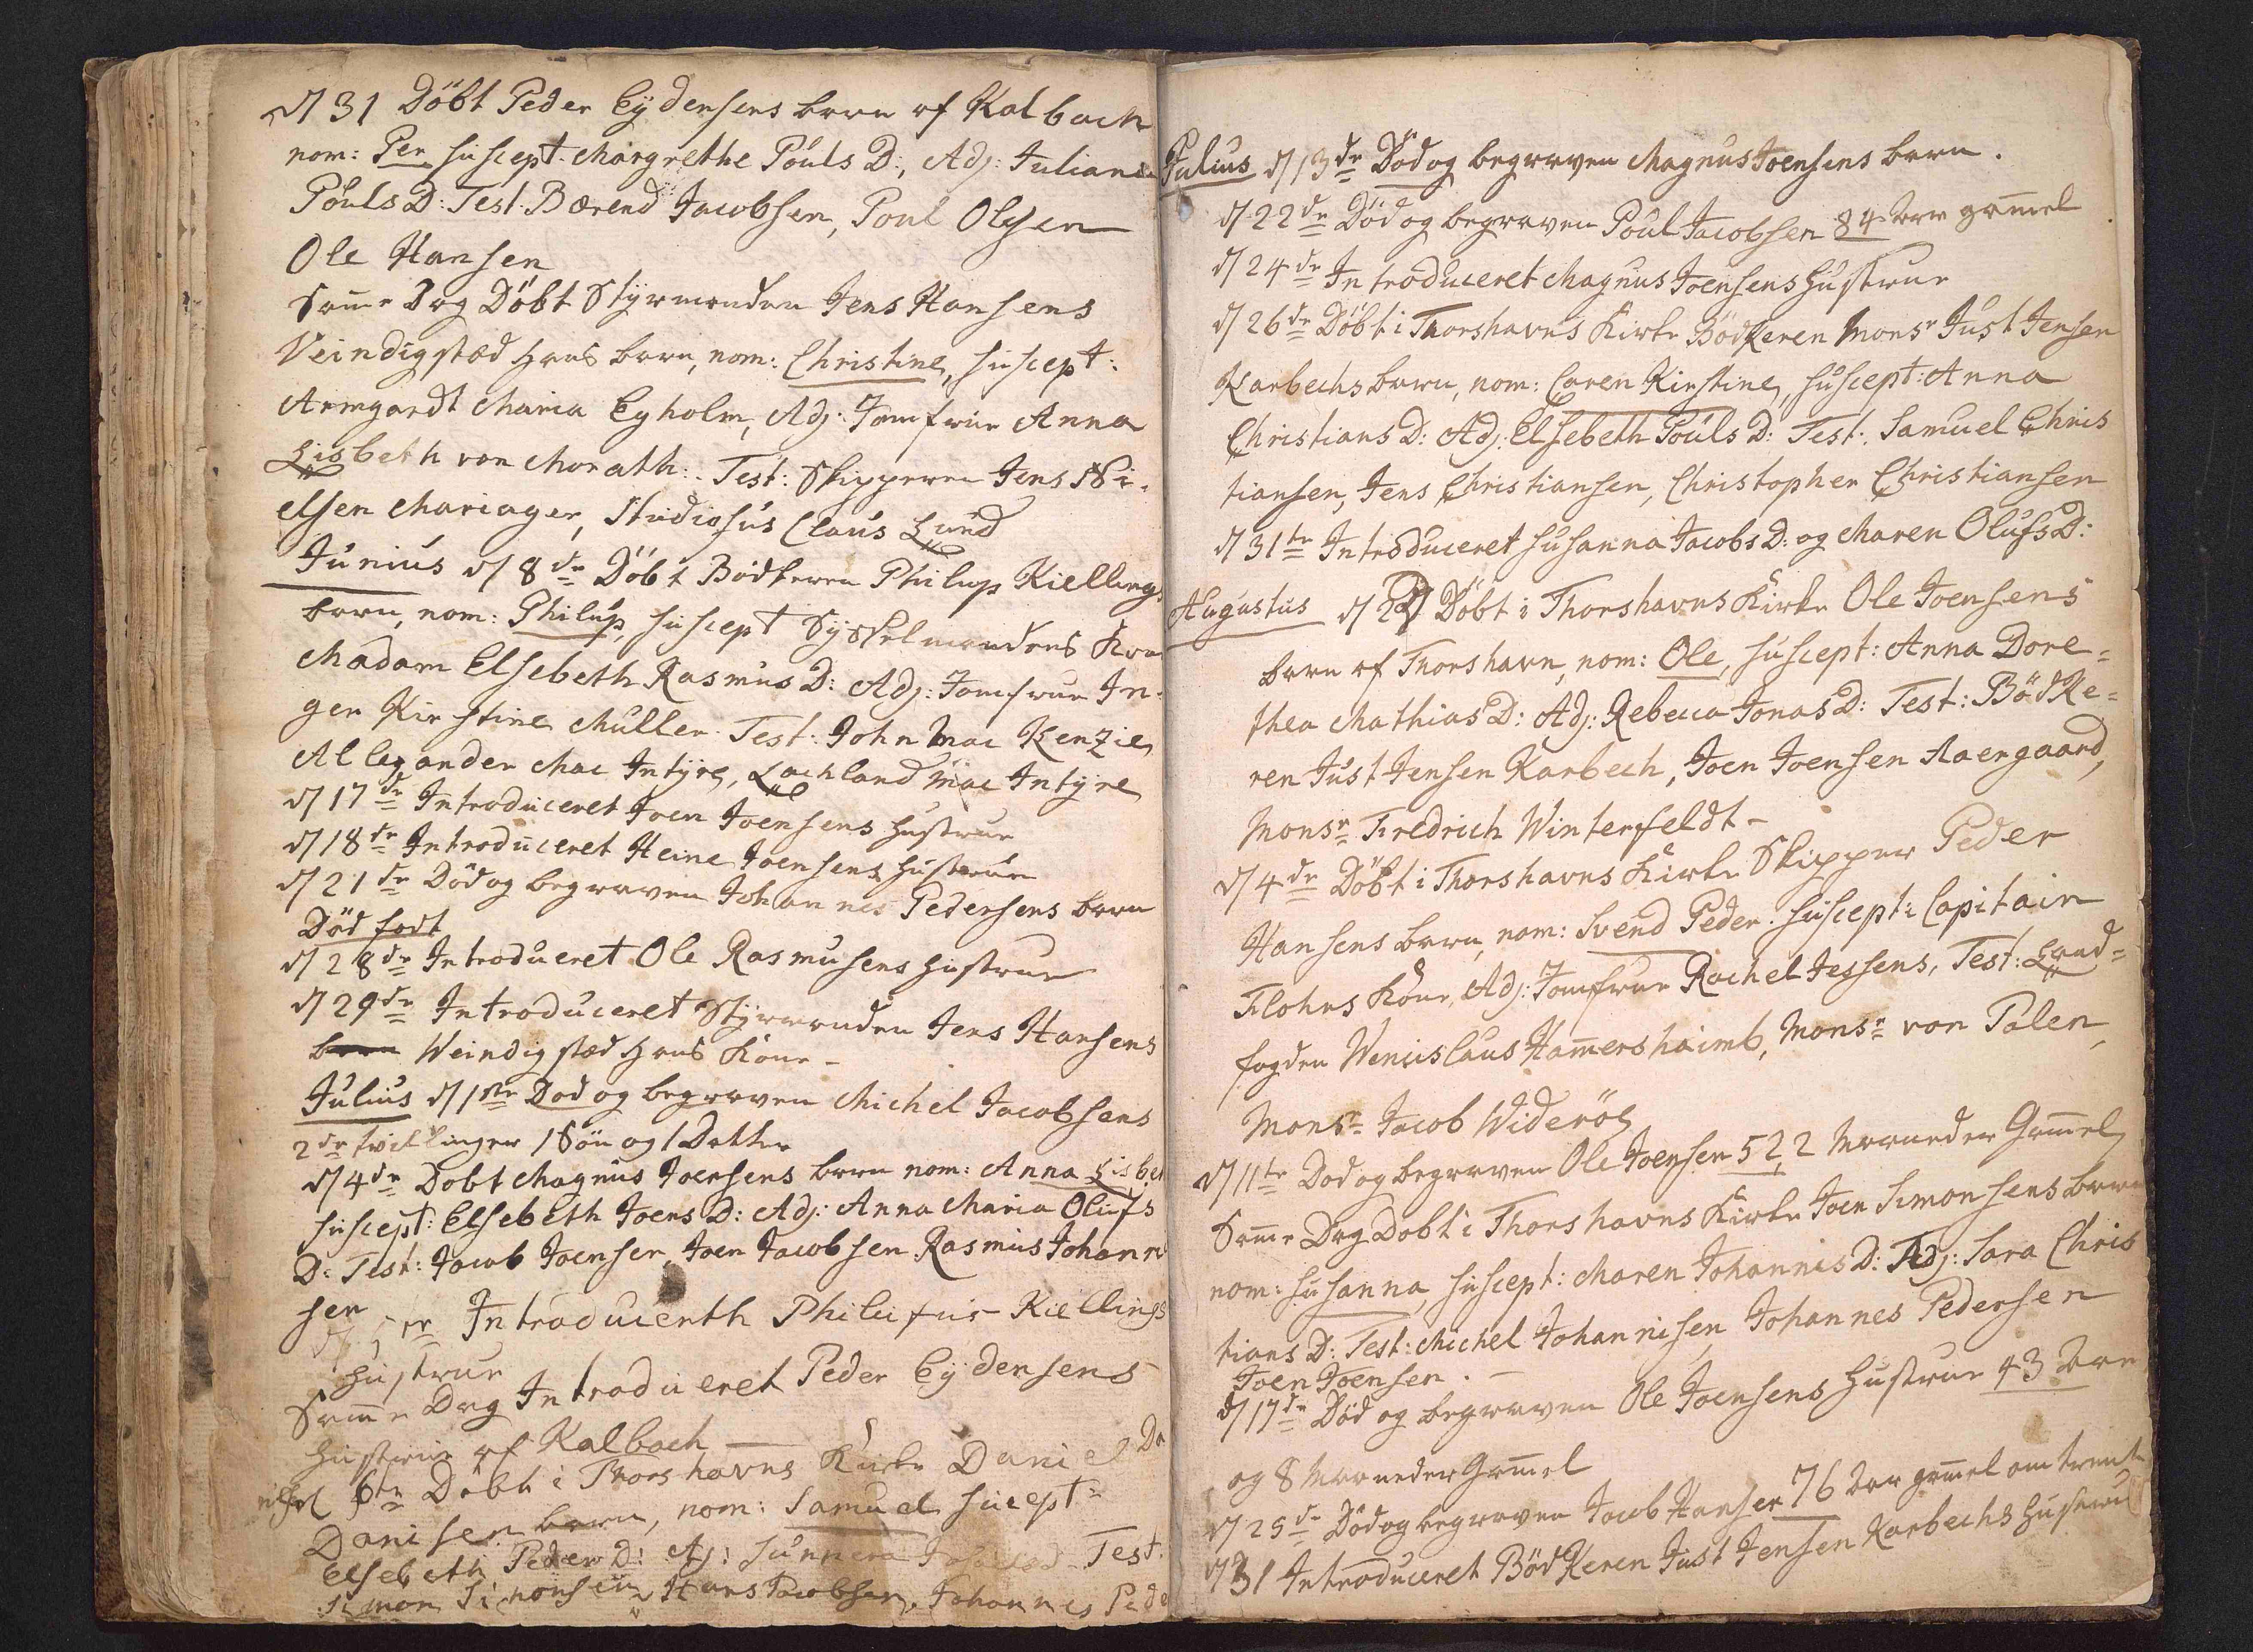 d/ 31 Döbt Peder Eÿdensens barn af Kalbach
nom: Per suscept. Margrethe Pouls D:, Adj: Juliana
Pouls D: Test. Bærend Jacobsen, Poul Olesen
Ole Hansen
Samme Dag Döbt Styrmanden Jens Hansens
Veindigstæd hans barn, nom: Christine, suscept:
Armgardt Maria Eyholm, Adj: Jomfrue Anna
Lisbeth von Morath: Test: Skipperen Jens Ni-
elsen Mariager, Studiosus Claus Lund
Junius d/ 8de Döbt Bödkeren Philup Kiellings
barn, nom: Philup, suscept Sysselmandens Kone
Madam Elsebeth Rasmus D: Adj: Jomfrue In-
ger Kirstine Muller. Test: John Mac Kenzie,
Allexander Mac Intÿre, Lachland Mac Intÿre
d/ 17de Introduceret Joen Joensens hustrue
d/ 18de Introduceret Heine Joensens hustrue
d/ 21de Död og begraven Johannes Pedersens barn
Död födt
d/ 28de Introduceret Ole Rasmusens hustrue
d/ 29de Introduceret Styrmanden Jens Hansens
barn Weindigstæd hans Kone
Julius d/ 1ste Dod og begraven Michel Jacobsens
2de tvillinger 1 Sön og 1 Datter
d/ 4de Dobt Magnus Joensens barn nom: Anna Lisbet
suscept: Elsebeth Joens D: Adj: Anna Maria Olufs
D: Test: Jacob Joensen, Joen Jacobsen Rasmus Johanne
sen
Introducerth Philipus Kiellings
hustrue
Samme Dag Introduceret Peder Eÿdensens
hustrue af Kalbach
6te Döbt i Thorshavns Kirke Daniel Da
Danisen barn, nom: Samuel sucept:
Elsebeth Peders D: Adj: Sunneva Test.
Simon Simonsen, Hans Jacobsen, Johannes Pede
Julius d/ 13de Död og begraven Magnus Joensens barn.
d/ 22de Död og begraven Poul Jacobsen 84 Aar gammel
d/ 24de Introduceret Magnus Joensens hustrue
d/ 26de Döbt i Thorshavns Kirke Bödkeren Monsr Just Jensen
Karbechs barn, nom: Caren Kirstine, suscept: Anna
Christians D: Adj: Elsebeth Pouls D: Test: Samuel Chris
tiansen, Jens Christiansen, Christopher Christiansen
d/ 31te Introduceret Susanna Jacobs D: og Maren Olufs D:
Augustus d/ 2 Döbt i Thorshavns Kirke Ole Joensens
barn af Thorshavn, nom: Ole, suscept: Anna Dore=
thea Mathias D: Adj: Rebecca Jonas D: Test: Bödke=
ren Just Jensen Karbech, Joen Joensen Aaergaard,
Monsr Fredrich Winterfeldt -
d/ 4de Döbt i Thorshavns Kirke Skipper Peder
Hansens barn, nom: Svend Peder. suscept: Capitain
Flohrs Kone, Adj: Jomfrue Rachel Jessens, Test: Land=
fogden Wenislaus Hammershaimb, Monsr von Palen,
Monsr Jacob Wideröe
d/ 11te Dod og begraven Ole Joensen 52, 2 Maaneder Gammel
Samme Dag Dobt i Thorshavns Kirke Joen Simonsens barn
nom: Susanna, suscept: Maren Johannis D: Adj: Sara Chris
tians D: Test: Michel Johannisen, Johannes Pedersen
Joen Joensen. -
d/ 17de Död og begraven Ole Joensens hustrue 43 Aar
og 8 Maaneder Gammel
d/ 25de Död og begraven Jacob Hansen 76 Aar gammel omtrent
d/ 31 Introduceret Bödkeren Just Jensen Karbechs hustrue